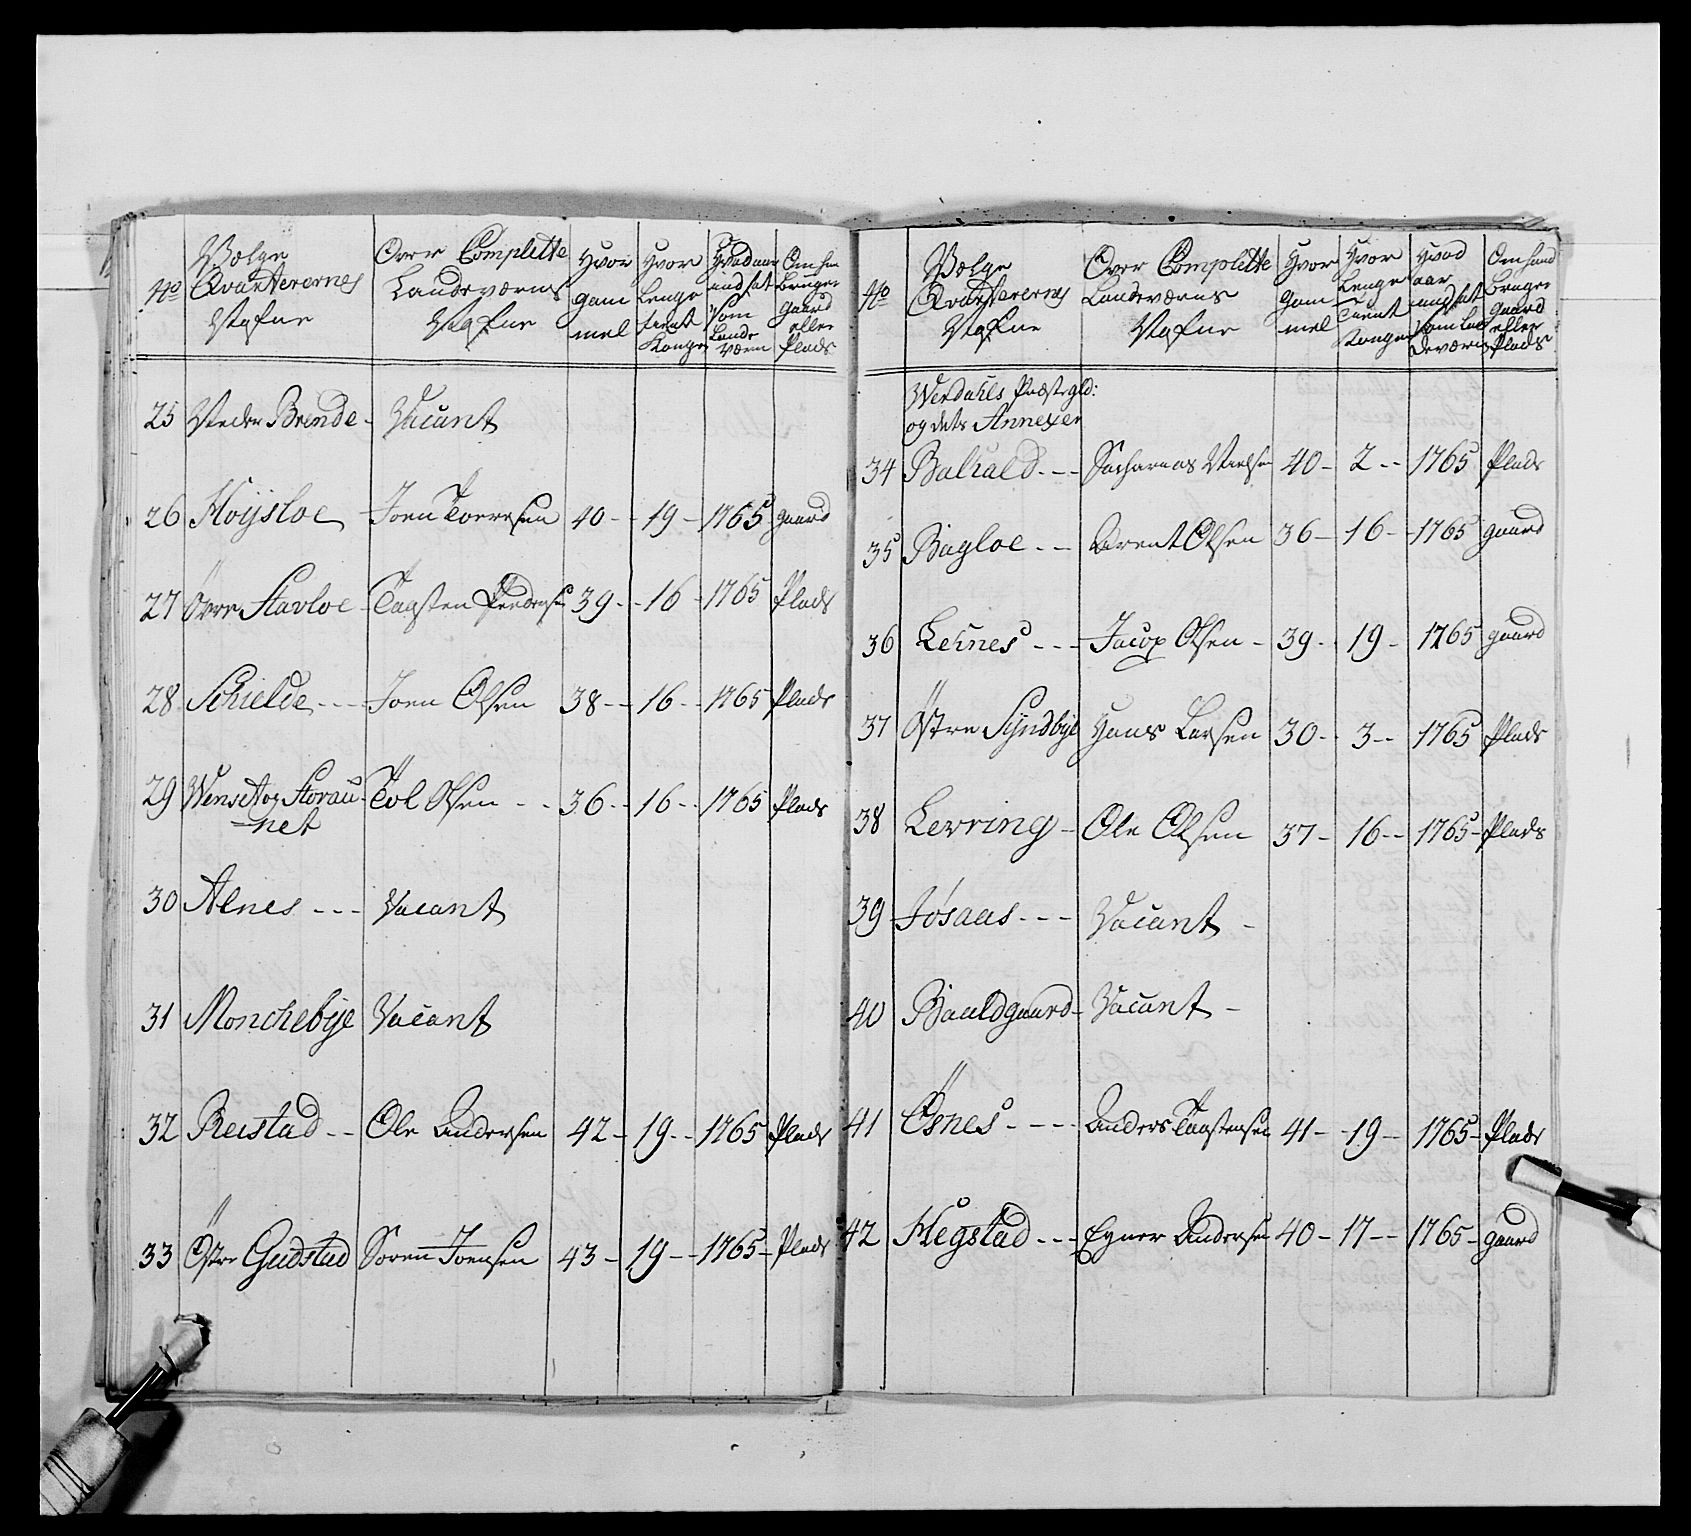 No
Følge
Qvarterernes
Nafne
Over Complette
Landeværns
Nafne
Hvor
gam
mel
Hvor
Lenge
tient
Kongen
Hvad aar
ind sat
som
Lande
værn
Om han
Bruger
Gaard
eller
Plads
25 Neder Brende - Vacant
26 Høysloe Joen Toeresen 40 - 19 - 1765 gaard
27 Övre Stavloe - Taasten Pedersen 39 - 16 - 1765 Plads
28 Schielde - - - Joen Olsen 38 - - 16 - - 1765 Plads
29 Wenset og Storau Tol Olsen - - 36 - - 16 - - 1765 Plads
= net
30 Alnes - - - Vacant
31 Monchebye Vacant
32 Reistad - - Ole Andersen 42 - 19 - - 1765 Plads
33 Östre Gudstad Soren Joensen 43 - 19 - - 1765 - Plads
No
Følge
Qvarterernes
Nafne
Over Complette
Landeværns
Nafne
Hvor
Gam
mel
Hvor
Lenge
Tient
Kongen
Hvad
aar
ind sat
som Lan
deværn
Om hand
Bruger
Gaard
eller
Plads
Werdahls Præstegld:
og dets Annexer
34 Balhald - - - Sacharias Nielsen 40 - 2 - - 1765 Plads
35 Bagloe - - Arent Olsen 36 - 16 - - 1765 gaard
36 Leines - - - Jacop Olsen - 39 - 19 - 1765 gaard
37 Östre Syndbye Hans Larsen 30 - 3 - - 1765 Plads
38 Levring - Ole Olsen 37 - 16 - - 1765 - Plads
39 Jøsaas - - - Vacant -
40 Baaldgaard - Vacant -
41 Ösnes - - - - Anders Taastensen 41 - - 19 - - 1765 - Plads
42 Hegstad - - - Egner Andersen 40 - 17 - - 1765 - gaard